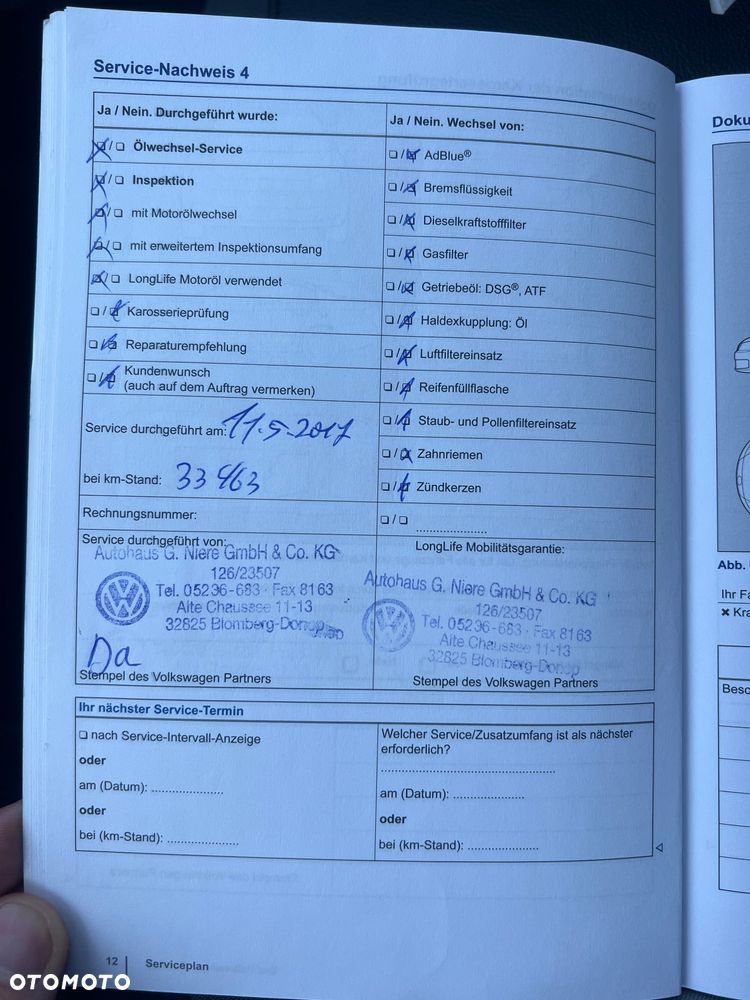 Service-Nachweis 4
Ja / Nein. Durchgeführt wurde:
❏/❏ Ölwechsel-Service
❏/❏ Inspektion
❏/❏ mit Motorölwechsel
❏/❏ mit erweitertem Inspektionsumfang
❏/❏ LongLife Motoröl verwendet
❏/❏ Karosserieprüfung
❏/❏ Reparaturempfehlung
❏/❏ Kundenwunsch
(auch auf dem Auftrag vermerken)
Service durchgeführt am: 11.5.2017
bei km-Stand: 33 463
Rechnungsnummer:
Service durchgeführt von:
Autohaus G. Niere GmbH & Co. KG
126/23507
Tel. 05236-683 · Fax 8163
Alte Chaussee 11-13
32825 Blomberg-Donop
Da
Stempel des Volkswagen Partners
Ja / Nein. Wechsel von:
❏/❏ AdBlue®
❏/❏ Bremsflüssigkeit
❏/❏ Dieselkraftstofffilter
❏/❏ Gasfilter
❏/❏ Getriebeöl: DSG®, ATF
❏/❏ Haldexkupplung: Öl
❏/❏ Luftfiltereinsatz
❏/❏ Reifenfüllflasche
❏/❏ Staub- und Pollenfiltereinsatz
❏/❏ Zahnriemen
❏/❏ Zündkerzen
❏/❏ ......................
LongLife Mobilitätsgarantie:
Autohaus G. Niere GmbH & Co. KG
126/23507
Tel. 05236-683 · Fax 8163
Alte Chaussee 11-13
32825 Blomberg-Donop
Stempel des Volkswagen Partners
Ihr nächster Service-Termin
❏ nach Service-Intervall-Anzeige
oder
am (Datum): ......................
oder
bei (km-Stand): ......................
Welcher Service/Zusatzumfang ist als nächster
erforderlich?
......................................................
am (Datum): ......................
oder
bei (km-Stand): ......................
12 Serviceplan
Doku
Abb.
Ihr Fa
✖ Kra
Besc
OTOMOTO